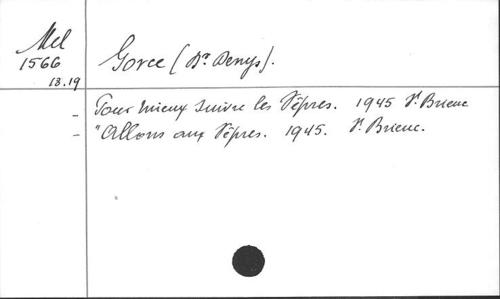 Mel
1566
18.19
Gorce (Dr Denys).
- Pour mieux suivre les Vêpres. 1945 St Brieuc
- "Allons aux Vêpres. 1945. St Brieuc.